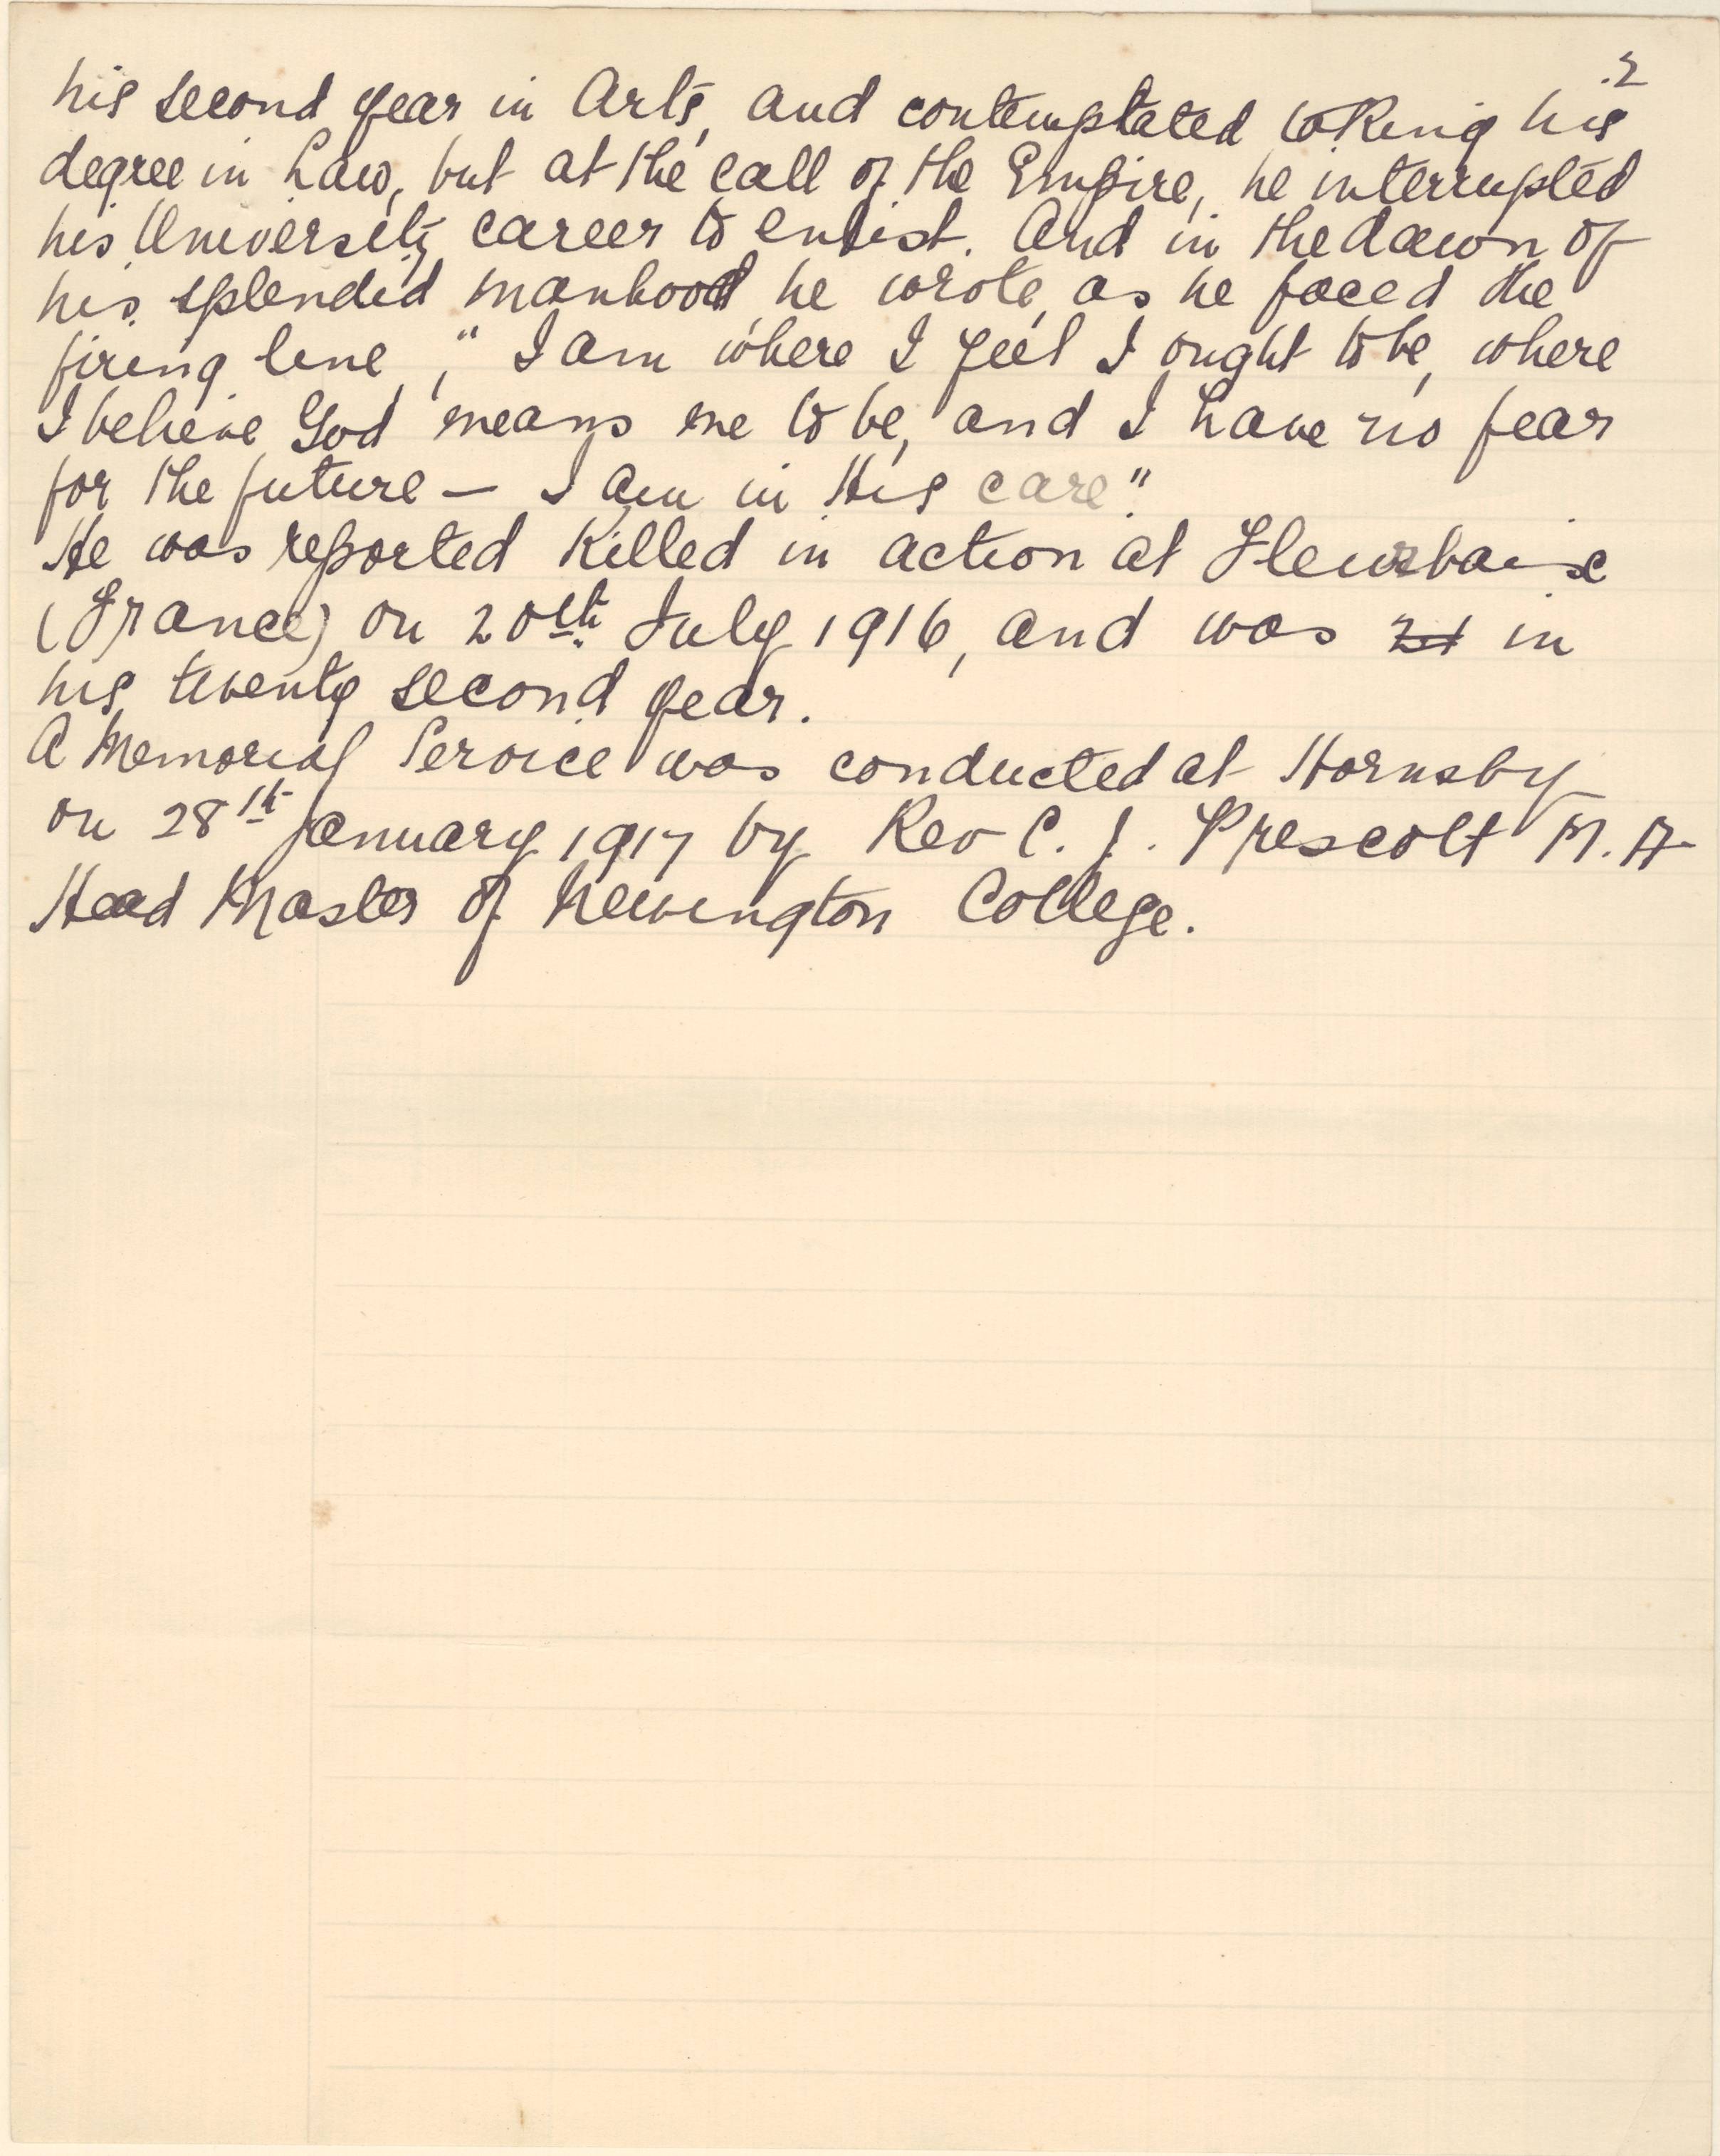 .2
his second year in Arts, and contemplated taking his
degree in Law, but at the call of the Empire, he interrupted
his University career to enlist. And in the dawn of
his splendid manhood, he wrote, as he faced the
firing line, "I am where I feel I ought to be, where
I believe God means me to be, and I have no fear
for the future — I am in His care".
He was reported killed in action at Fleurbaise
(France) on 20th July 1916, and was 21 in
his twenty second year.
A Memorial Service was conducted at Hornsby
on 28th January 1917 by Rev C. J. Prescott M.A
Head Master of Newington College.